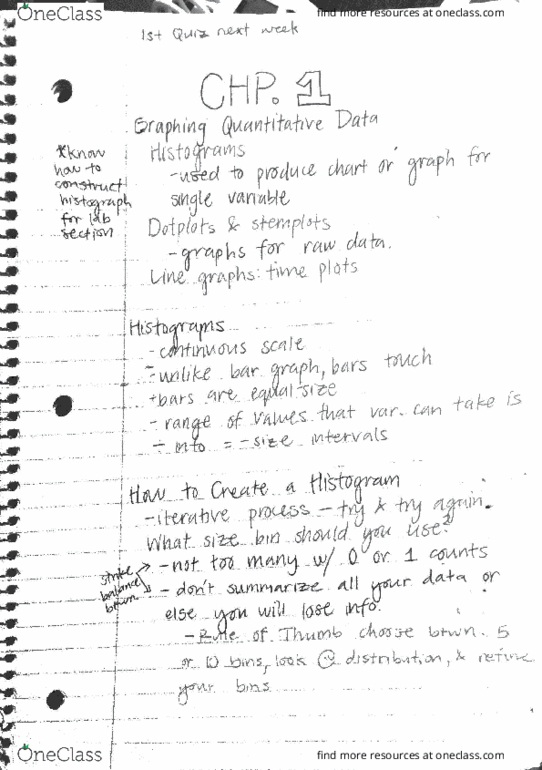 OneClass
find more resources at oneclass.com
1st Quiz next week
CHP. 1
Graphing Quantitative Data
*know how to construct histograph for lab section
Histograms
-used to produce chart or graph for
single variable
Dotplots & stemplots
-graphs for raw data.
Line graphs: time plots
Histograms
-continuous scale
-unlike bar graph, bars touch
+bars are equal size
- range of values that var. can take is
÷ into = -size intervals
How to Create a Histogram
-iterative process - try & try again.
What size bin should you use?
strike balance btwn
-not too many w/ 0 or 1 counts
- don't summarize all your data or
else you will lose info.
-Rule of Thumb choose btwn. 5
or 10 bins, look @ distribution, & refine
your bins
OneClass
find more resources at oneclass.com